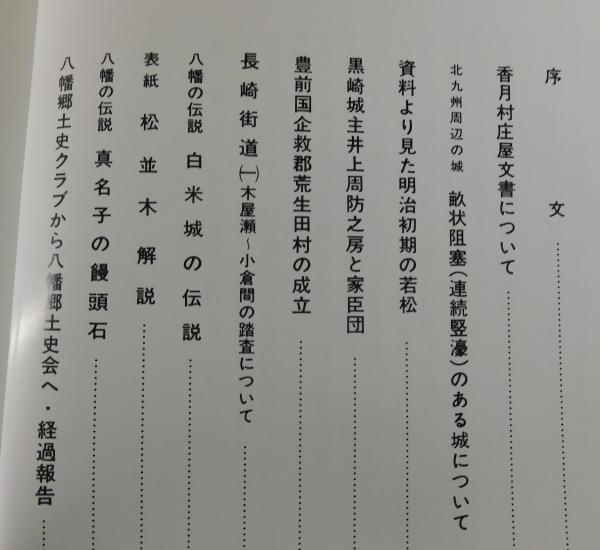 序文
香月村庄屋文書について
北九州周辺の城 畝状阻塞(連続竪濠)のある城について
資料より見た明治初期の若松
黒崎城主井上周防之房と家臣団
豊前国企救郡荒生田村の成立
長崎街道㈠木屋瀬~小倉間の踏査について
八幡の伝説 白米城の伝説
表紙 松並木解説
八幡の伝説 真名子の饅頭石
八幡郷土史クラブから八幡郷土史会へ・経過報告